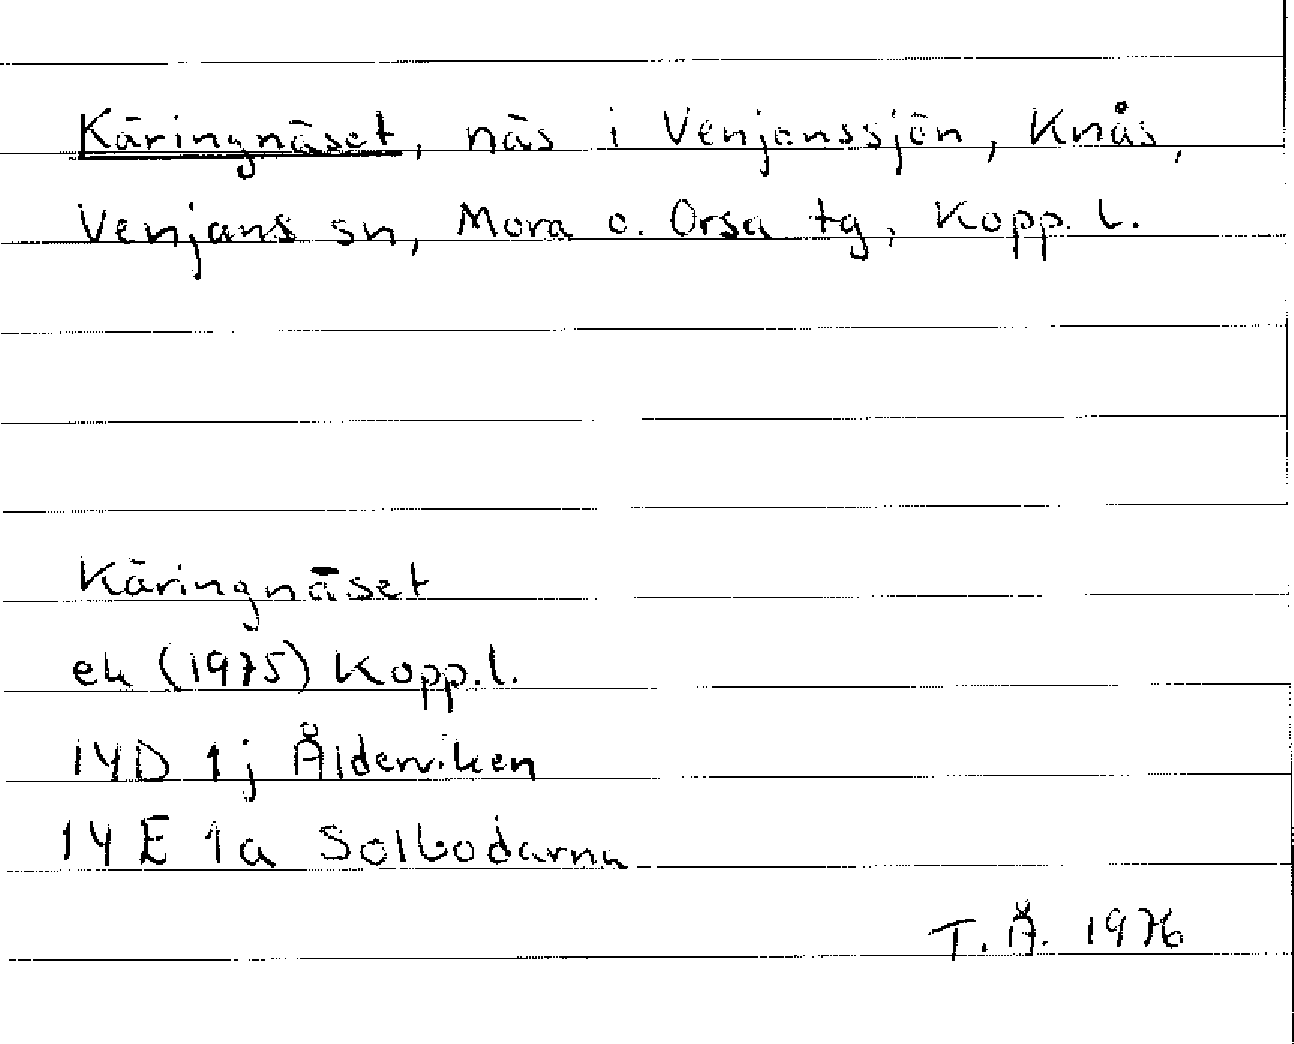 Käringnäset, näs i Venjanssjön, Knås,
Venjans sn, Mora o. Orsa tg, Kopp. l.
Käringnäset
ek (1975) Kopp.l.
14D 1j Ålderviken
14E 1a Solbodarna
T. Å. 1976